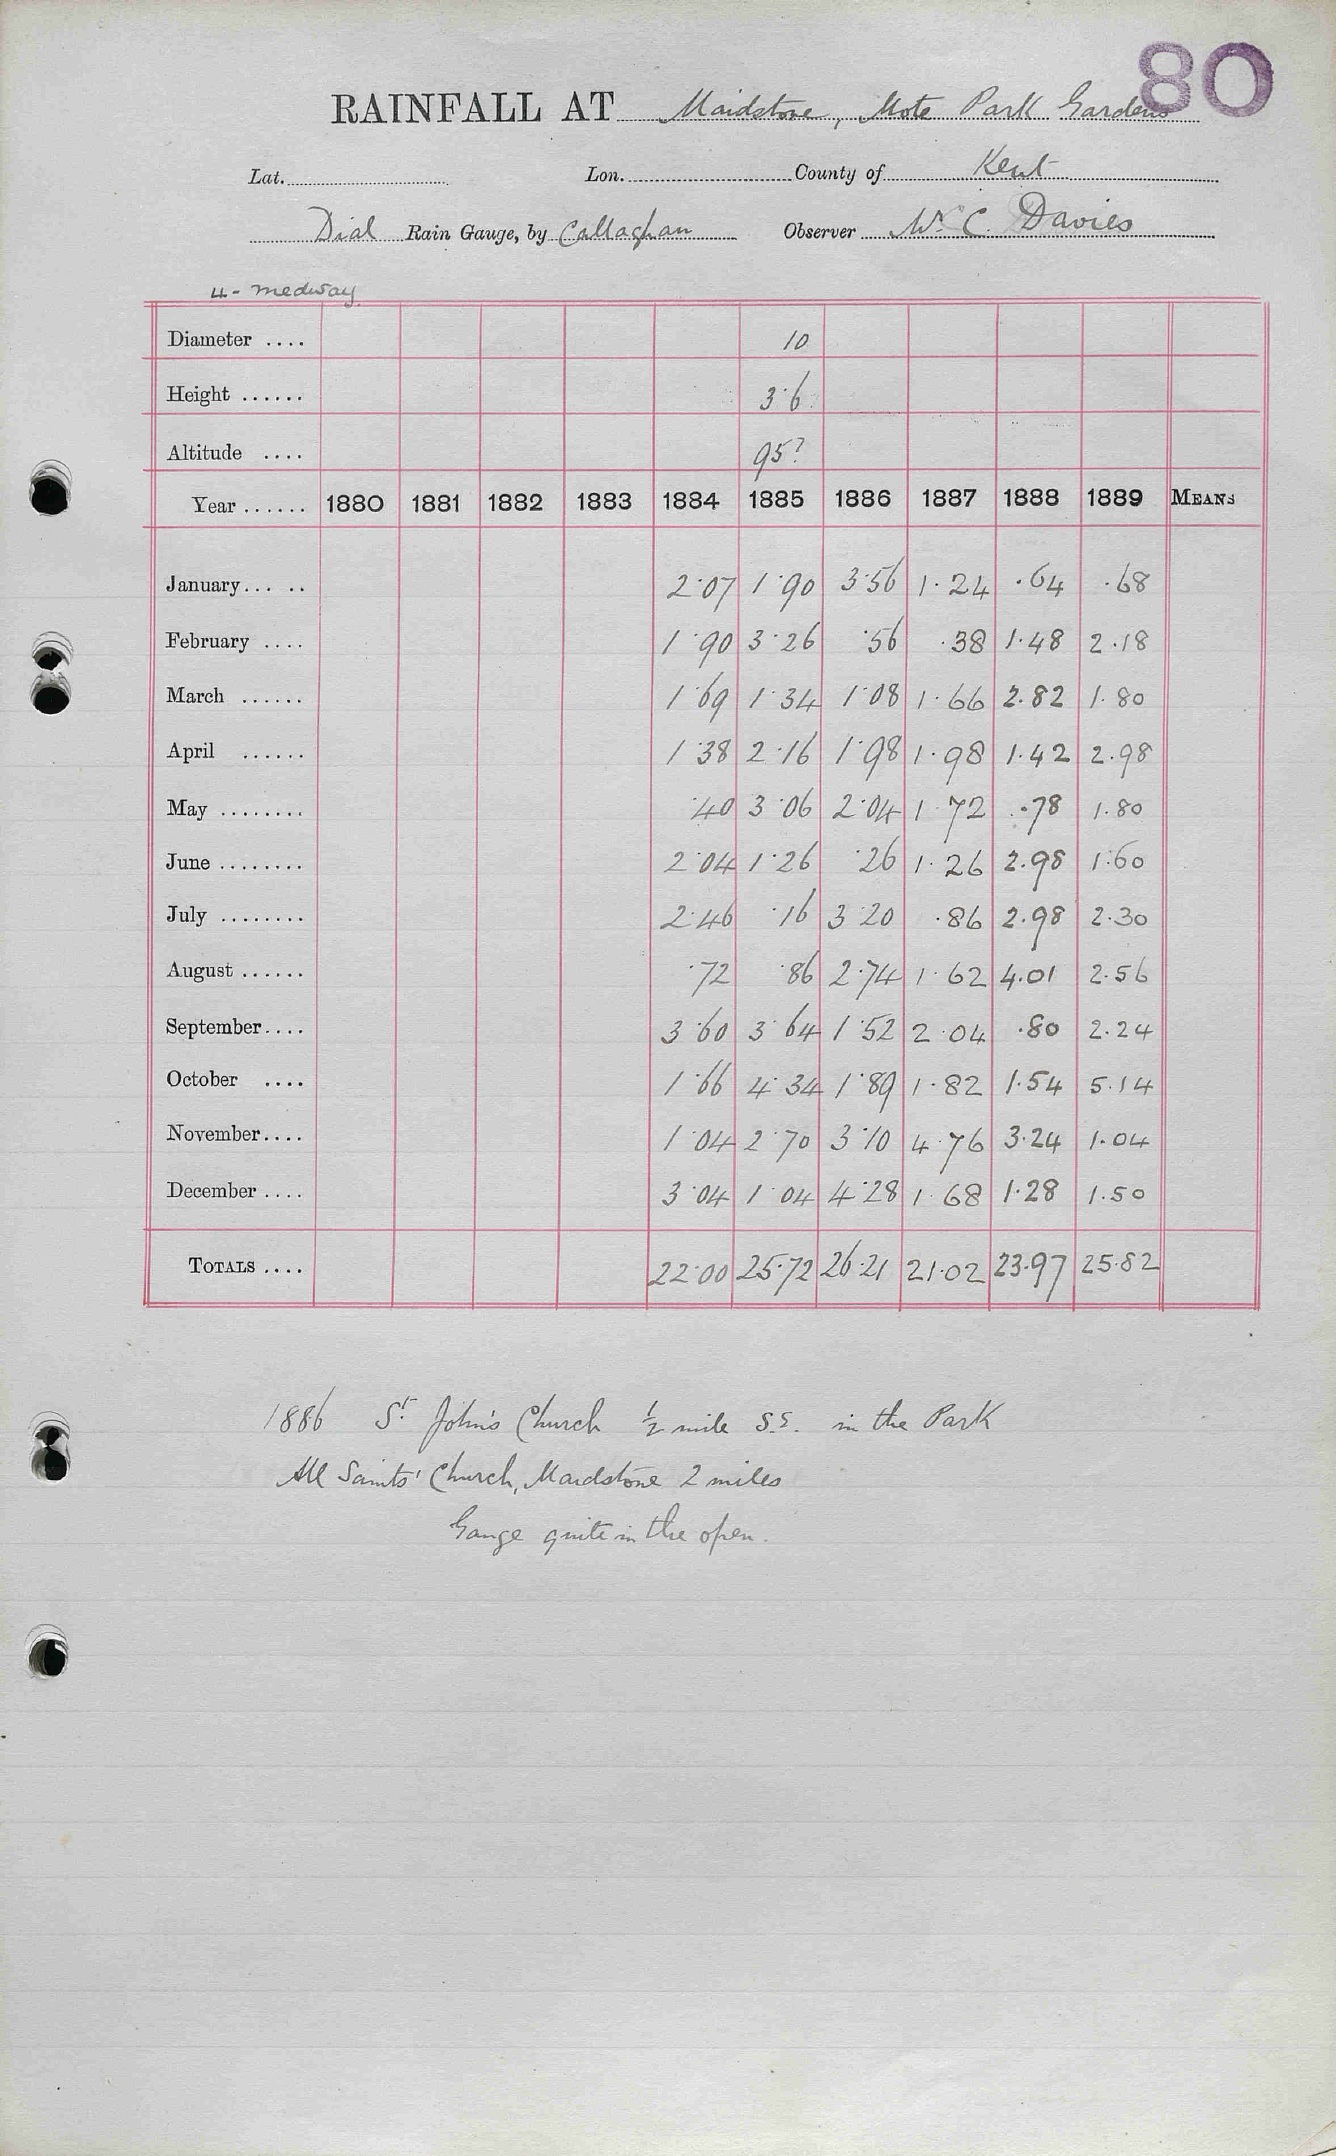 80
RAINFALL AT Maidstone, Mote Park Gardens
Lat. Lon. County of Kent
Dial Rain Gauge, by Callaghan Observer Mr. C. Davies
4 - medway
Diameter .... 10
Height ...... 3·6
Altitude .... 95?
Year ...... 1880 1881 1882 1883 1884 1885 1886 1887 1888 1889 MEANS
January... .. 2·07 1·90 3·56 1·24 ·64 ·68
February .... 1·90 3·26 ·56 ·38 1·48 2·18
March ...... 1·69 1·34 1·08 1·66 2.82 1.80
April ...... 1·38 2·16 1·98 1·98 1·42 2.98
May ........ ·40 3·06 2·04 1·72 ·78 1.80
June ........ 2·04 1·26 ·26 1·26 2.98 1·60
July ........ 2·46 ·16 3·20 ·86 2.98 2·30
August ...... ·72 ·86 2·74 1·62 4.01 2·56
September.... 3·60 3·64 1·52 2·04 ·80 2·24
October .... 1·66 4·34 1·89 1·82 1·54 5·14
November.... 1·04 2·70 3·10 4·76 3·24 1·04
December .... 3·04 1·04 4·28 1·68 1·28 1.50
TOTALS .... 22·00 25·72 26·21 21·02 23·97 25·82
1886 St. John's Church ½ mile S.E. in the Park
All Saints' Church, Maidstone 2 miles
Gauge quite in the open.